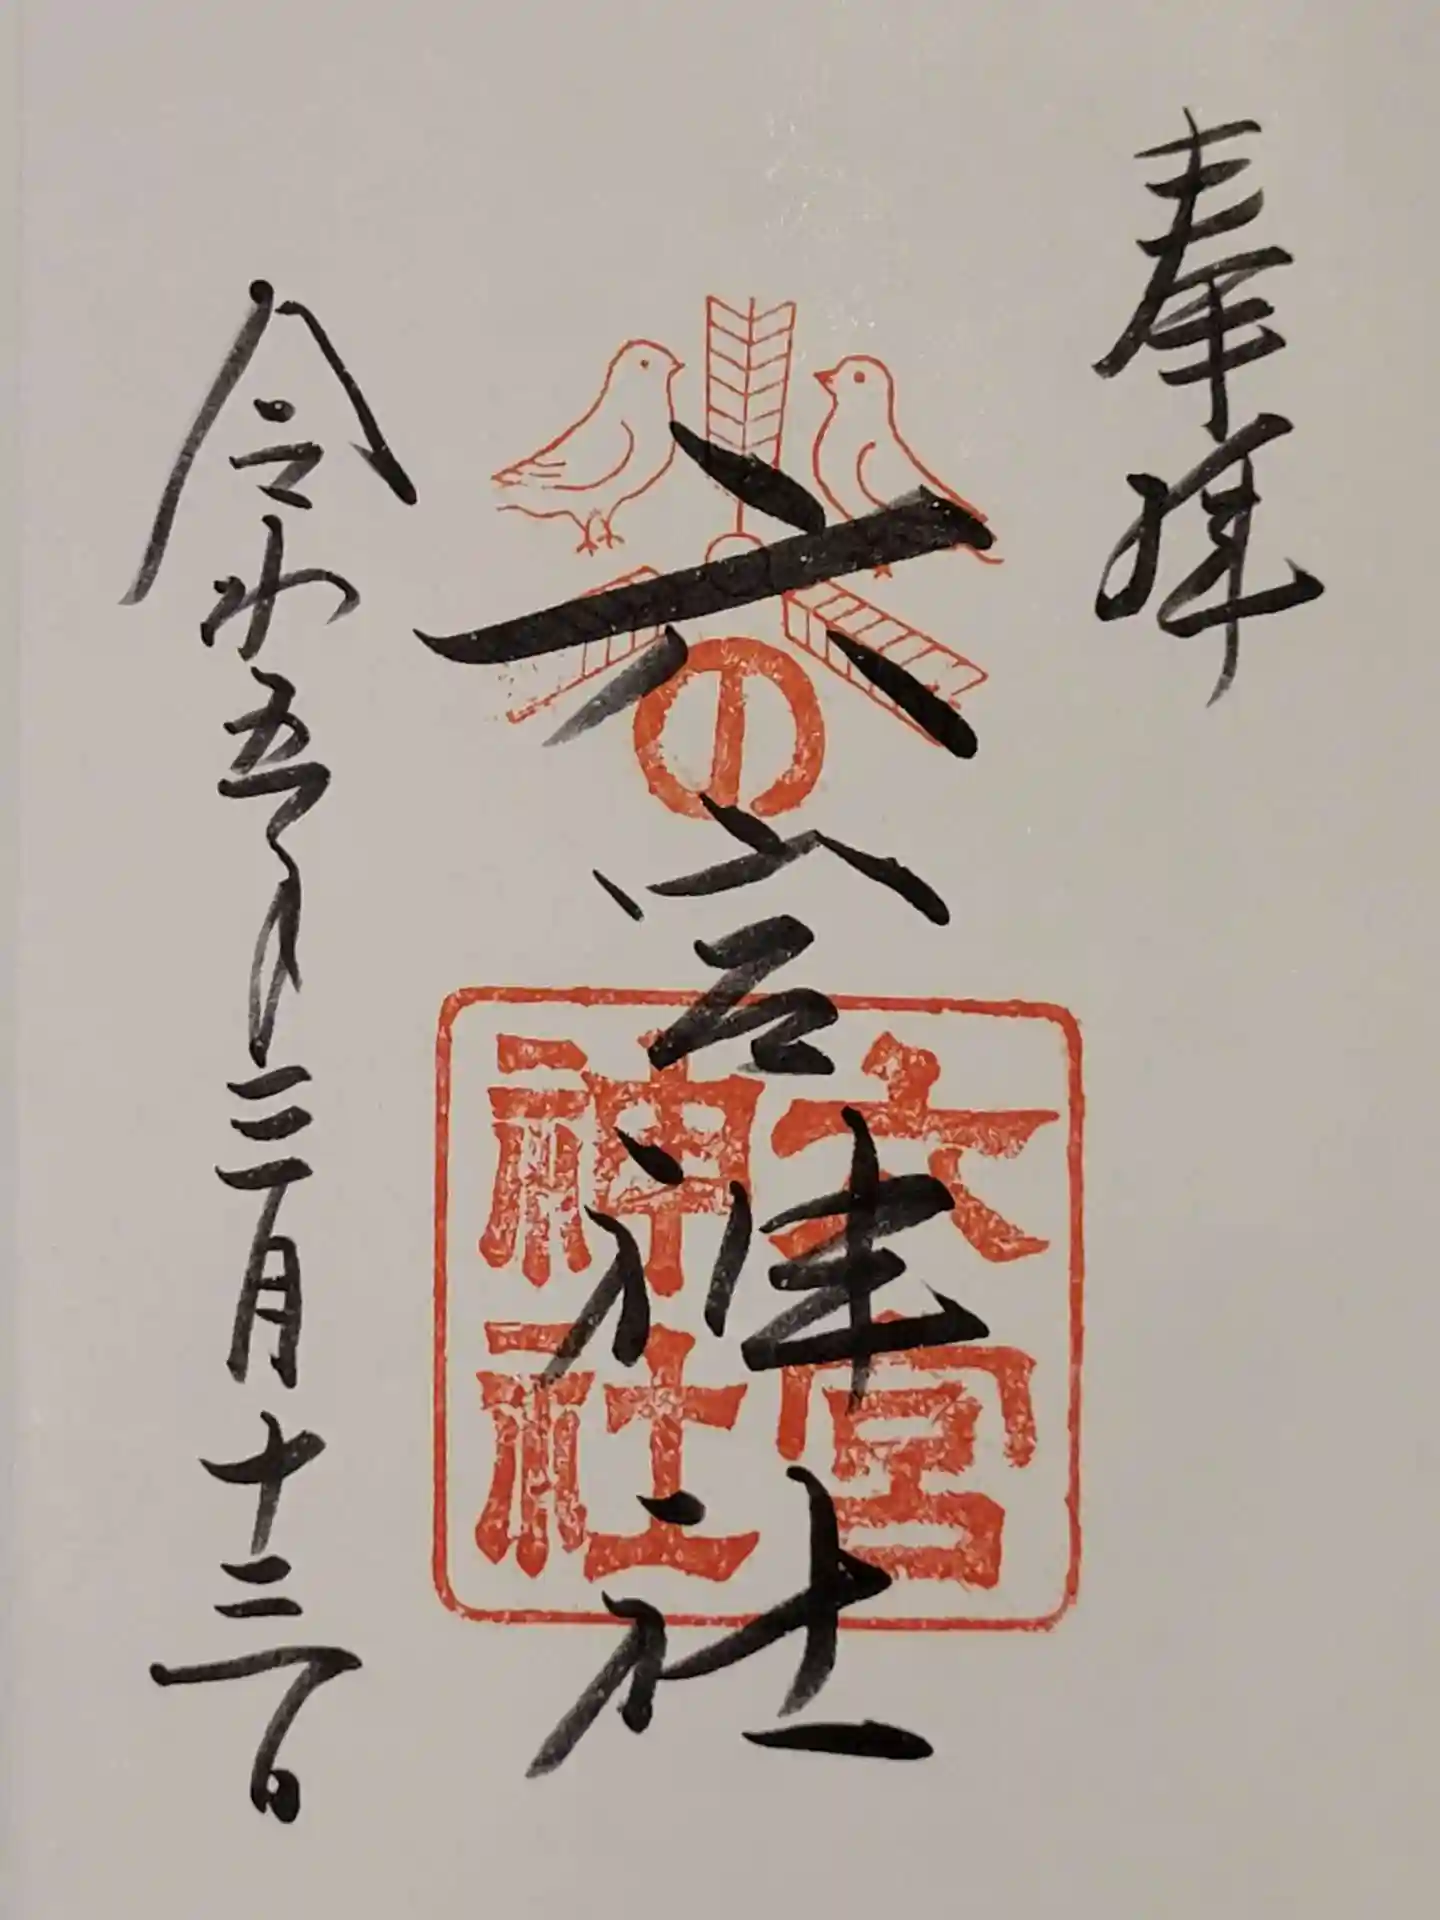 奉拝
六宮神社
六宮神社
令和五年三月十三日